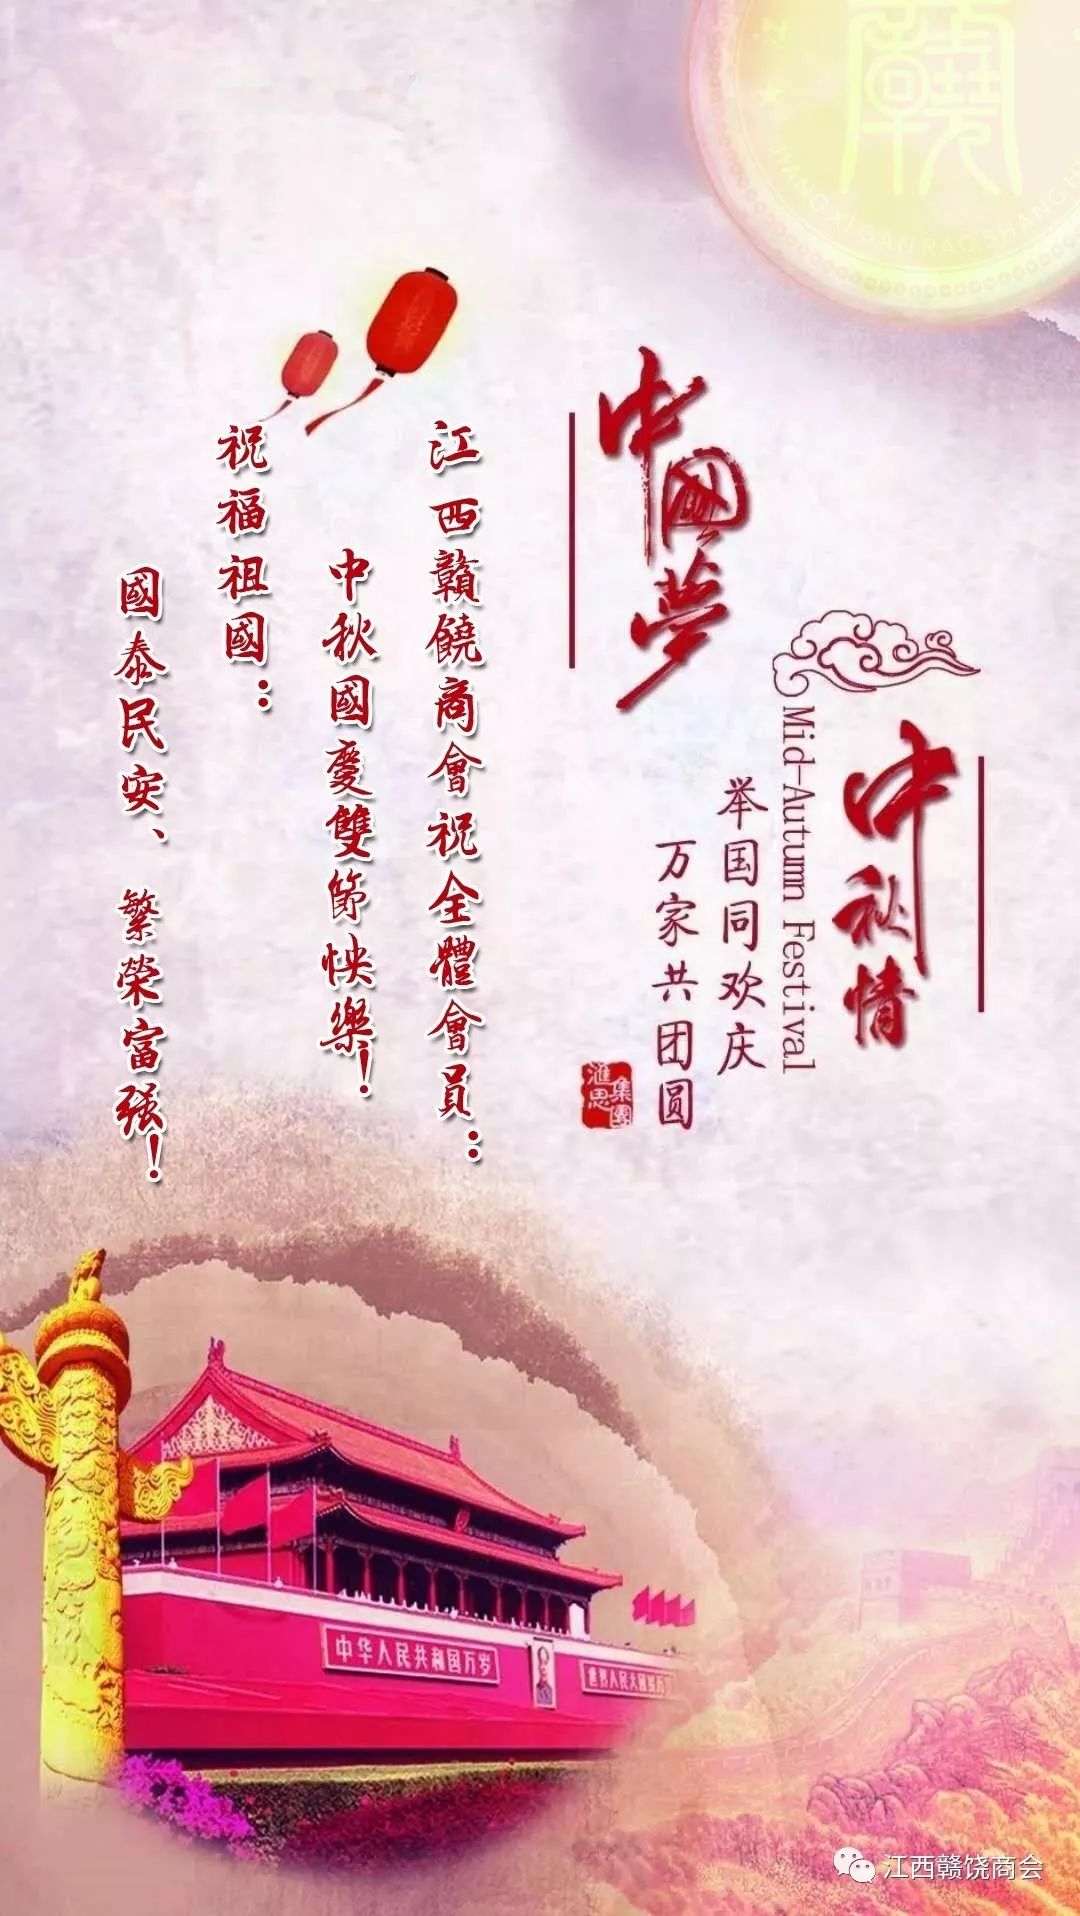 中秋情
Mid-Autumn Festival
举国同欢庆
万家共团圆
中國夢
滙思
集團
江西贛饒商會祝全體會員：
中秋國慶雙節快樂！
祝福祖國：
國泰民安、繁榮富强！
JIANG XI GAN RAO SHANG H
中华人民共和国万岁
世界人民大团结万
江西赣饶商会